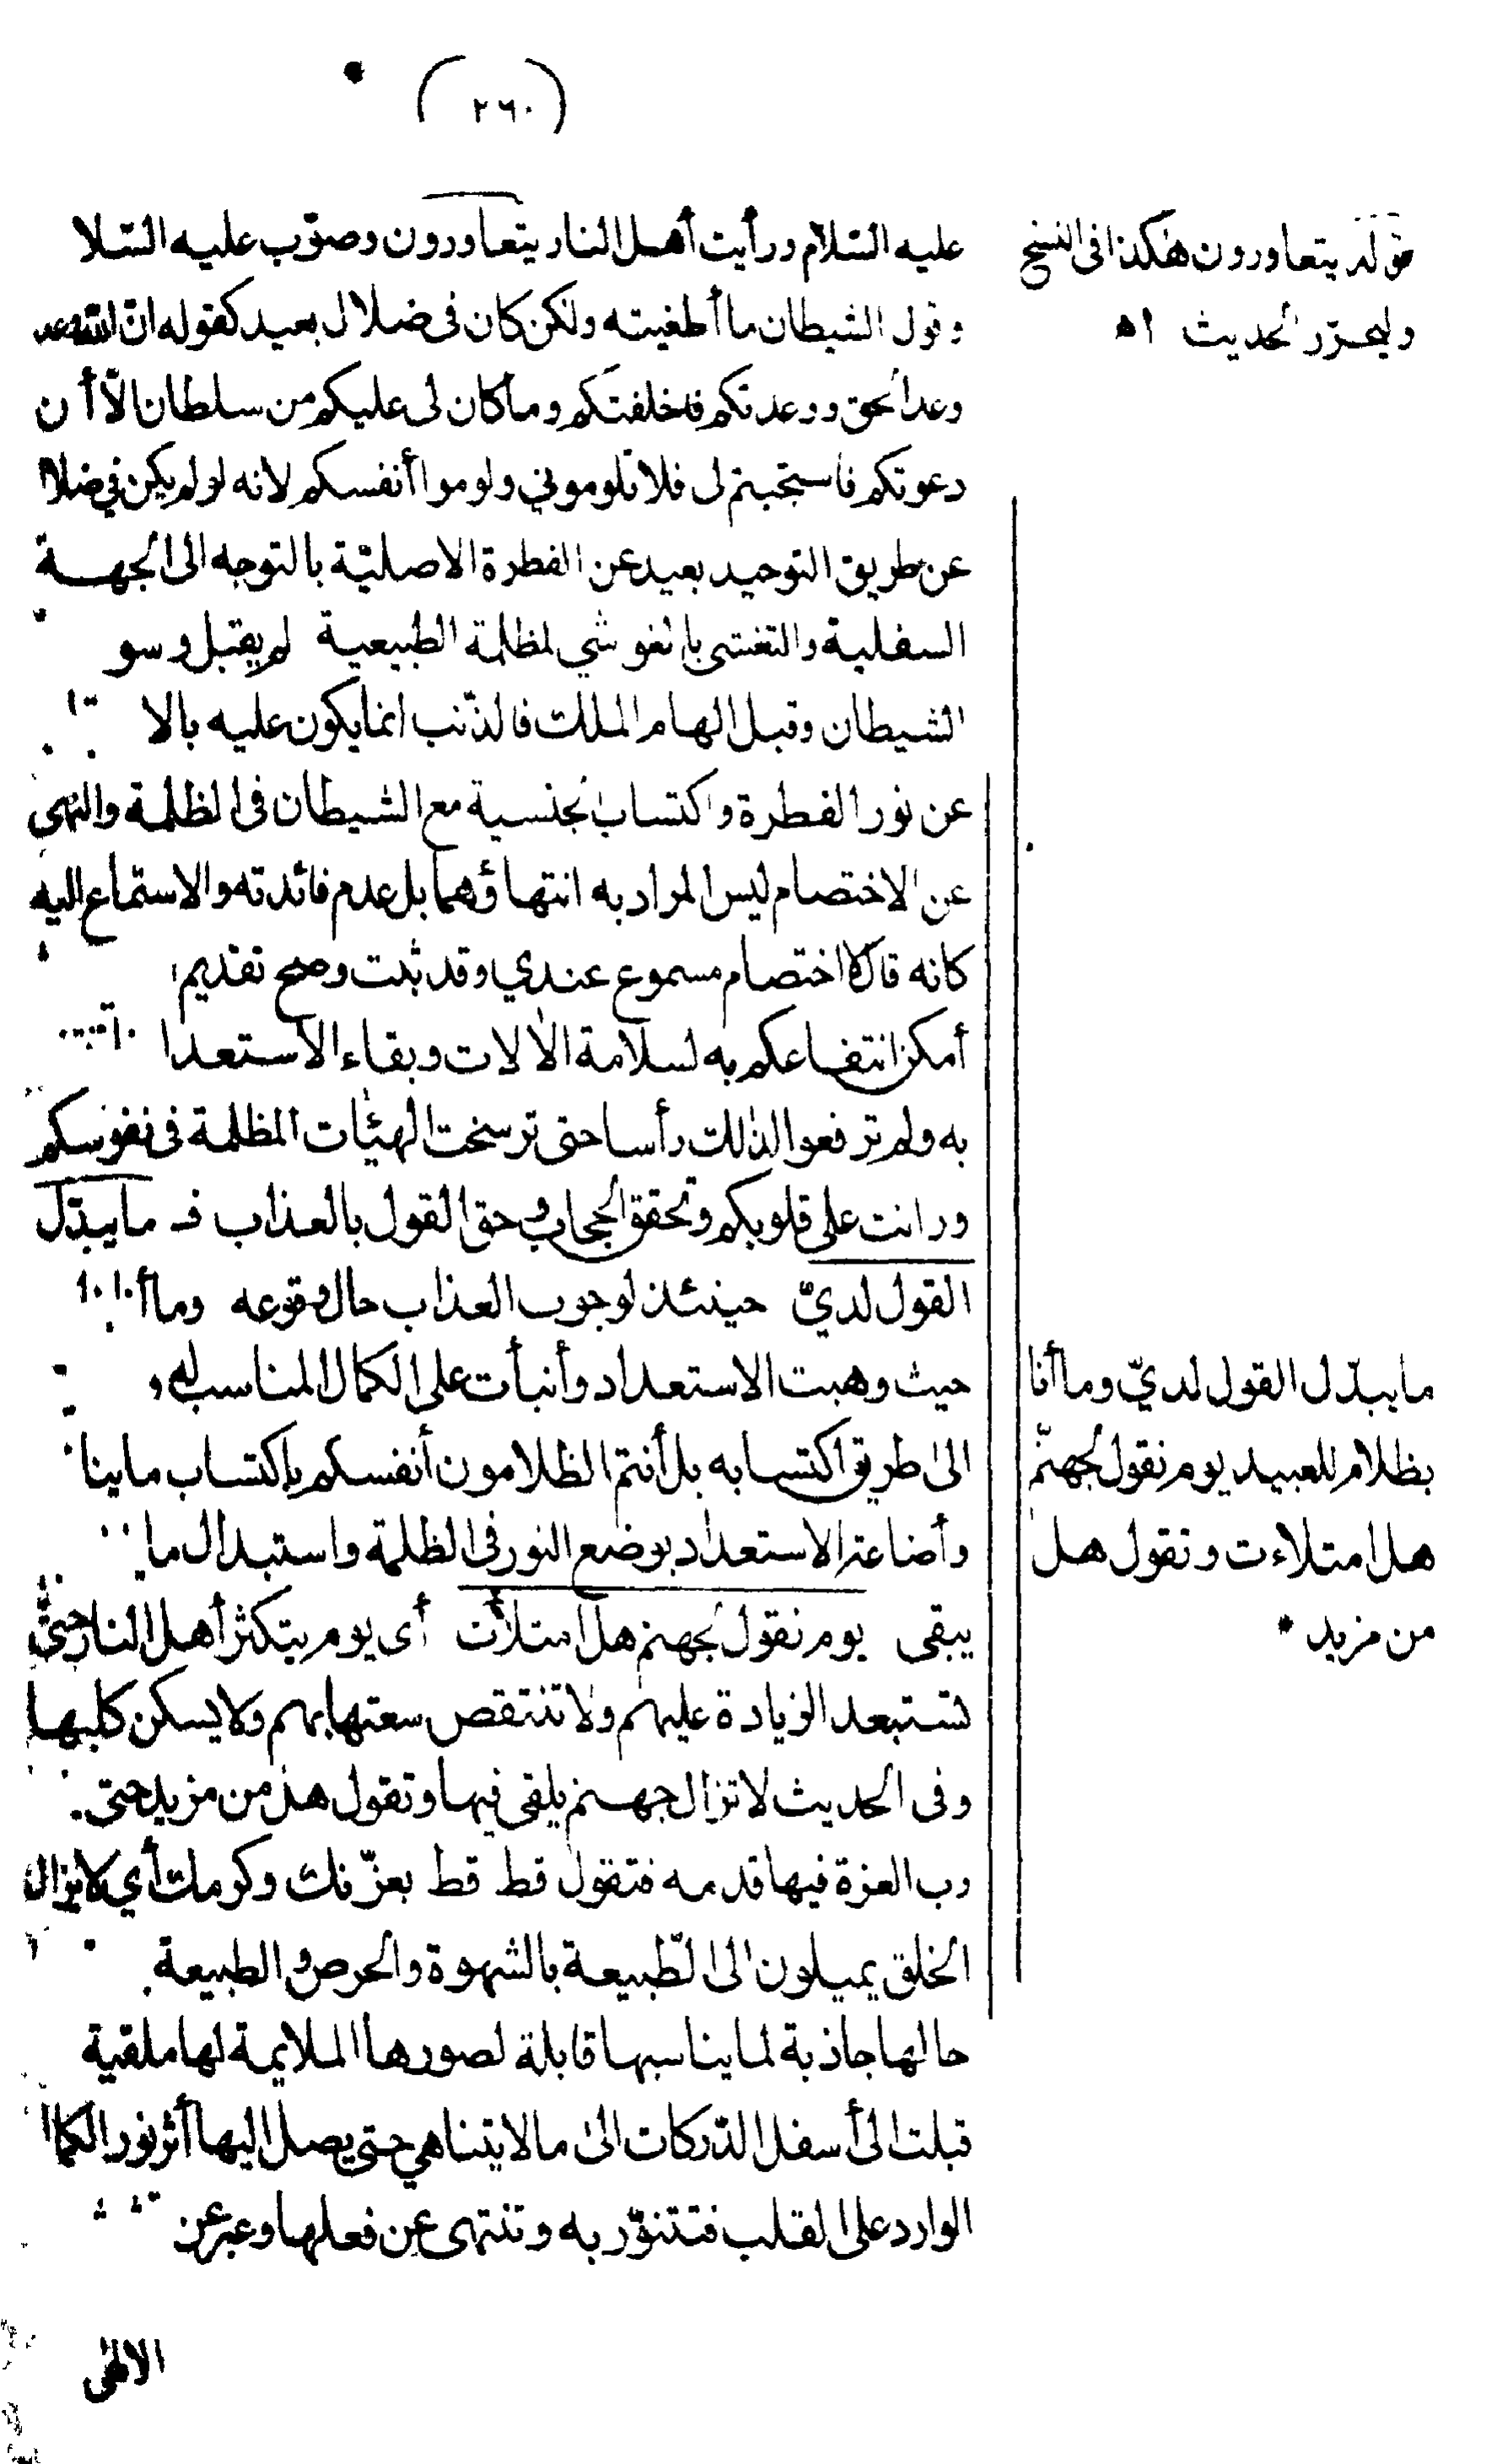 (٢٦٠)
عليه السلام ورأيت أهل النار يتعاورون وصوّب عليه السلا
وقول الشيطان ما أطغيته ولكن كان في ضلال بعيد كقوله انّ الله
وعد الحق ووعدتكم فاخلفتكم وما كان لى عليكم من سلطان الّا أن
دعوتكم فاستجبتم لى فلا تلوموني ولوموا أنفسكم لانه لو لم يكن في ضلا
عن طريق التوحيد بعيد عن الفطرة الاصليّة بالتوجه الى الجهة
السفلية والتغشى بالغواشي المظلمة الطبيعية لم يقبل وسو
الشيطان وقبل الهام الملك فالذنب انما يكون عليه بالا
عن نور الفطرة واكتساب الجنسية مع الشيطان فى الظلمة والنهى
عن الاختصام ليس المراد به انتهاؤهما بل عدم فائدته والاستماع اليه
كانه قال لا اختصام مسموع عندي وقد ثبت وصح تقديم
أمكن انتفاعكم به لسلامة الآلات وبقاء الاستعدا
به ولم ترفعوا لذلك رأسا حتى ترسخت الهيئات المظلمة فى نفوسكم
ورانت على قلوبكم وتحقق الحجاب وحق القول بالعذاب فـ ما يبدّل
القول لديّ حينئذ لوجوب العذاب حال وقوعه وما أنا
حيث وهبت الاستعداد وأنبأت على الكمال المناسب له و
الى طريق اكتسابه بل أنتم الظلامون أنفسكم باكتساب ما ينا
وأضاعة الاستعداد بوضع النور فى الظلمة واستبدال ما
يبقى يوم نقول لجهنم هل امتلأت أى يوم يتكثر أهل النار حتى
تستبعد الزيادة عليهم ولا تنتقص سعتها بهم ولا يسكن كلبها
وفى الحديث لا تزال جهنم يلقى فيها وتقول هل من مزيد حتى
رب العزة فيها قدمه فتقول قط قط بعزّتك وكرمك أي لا يزال
الخلق يميلون الى الطّبيعة بالشهوة والحرص والطبيعة
حالها جاذبة لما يناسبها قابلة لصورها الملايمة لها ملقية
قبلت الى أسفل الدّركات الى ما لا يتناهي حتى يصل اليها أثر نور الكما
الوارد على القلب فتتنوّر به وتنتهى عن فعلها وعبر عن
الالهى
قوله يتعاورون هكذا فى النسخ
وليحرّر الحديث اه
ما يبدّل القول لديّ وما أنا
بظلام للعبيد يوم نقول لجهنّم
هل امتلاءت وتقول هل
من مزيد *